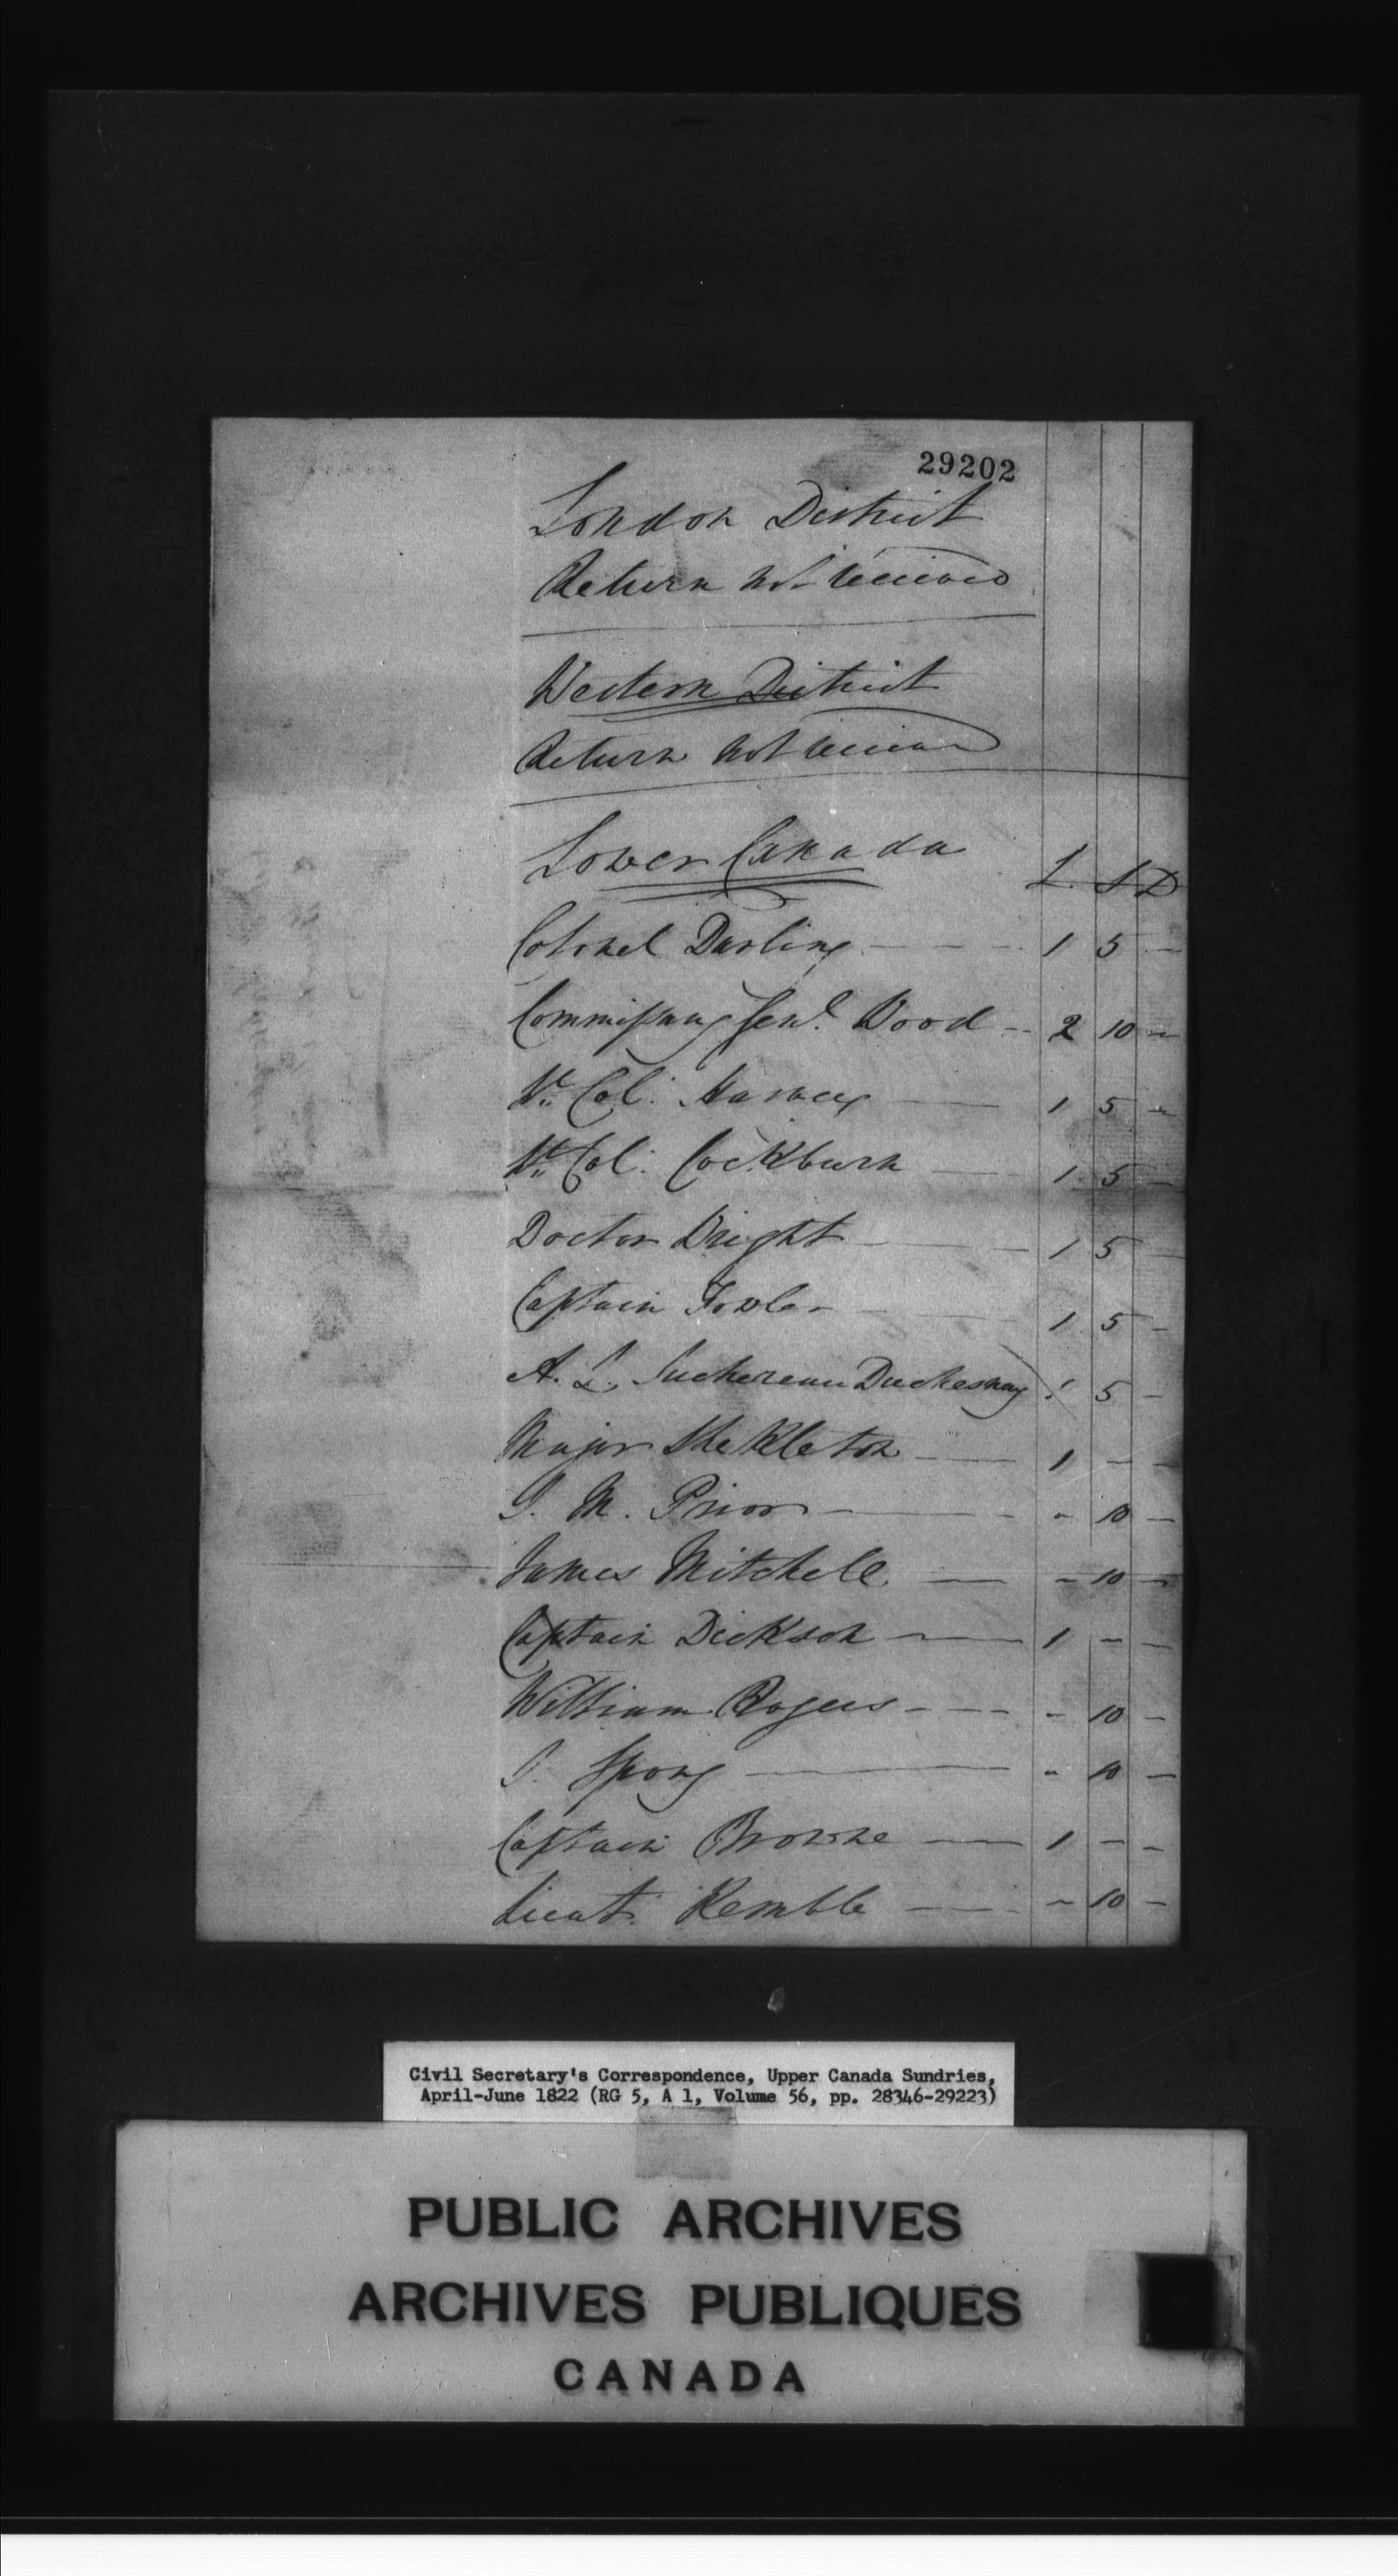 29202
London District
Return not received
Western District
Return not received
Lower Canada L S D
Colonel Darling — — — 1 5 —
Commissary Genl. Wood -- 2 10 —
Lt. Col. Harvey — 1 5 —
Lt. Col. Cockburn — 1 5 —
Doctor Wright — — 1 5 —
Captain Fowler — 1 5 —
A. L. Juchereau Duchesnay 1 5 —
Major Shekleton — — 1 — —
Prior — — - 10 —
James Mitchell — - 10 —
Captain Dickson — — 1 — —
William Rogers - — — - 10 —
Spong — - 10 —
Captain Browne — 1 — —
Lieut. Kemble — - 10 —
Civil Secretary's Correspondence, Upper Canada Sundries,
April-June 1822 (RG 5, A 1, Volume 56, pp. 28346-29223)
PUBLIC ARCHIVES
ARCHIVES PUBLIQUES
CANADA